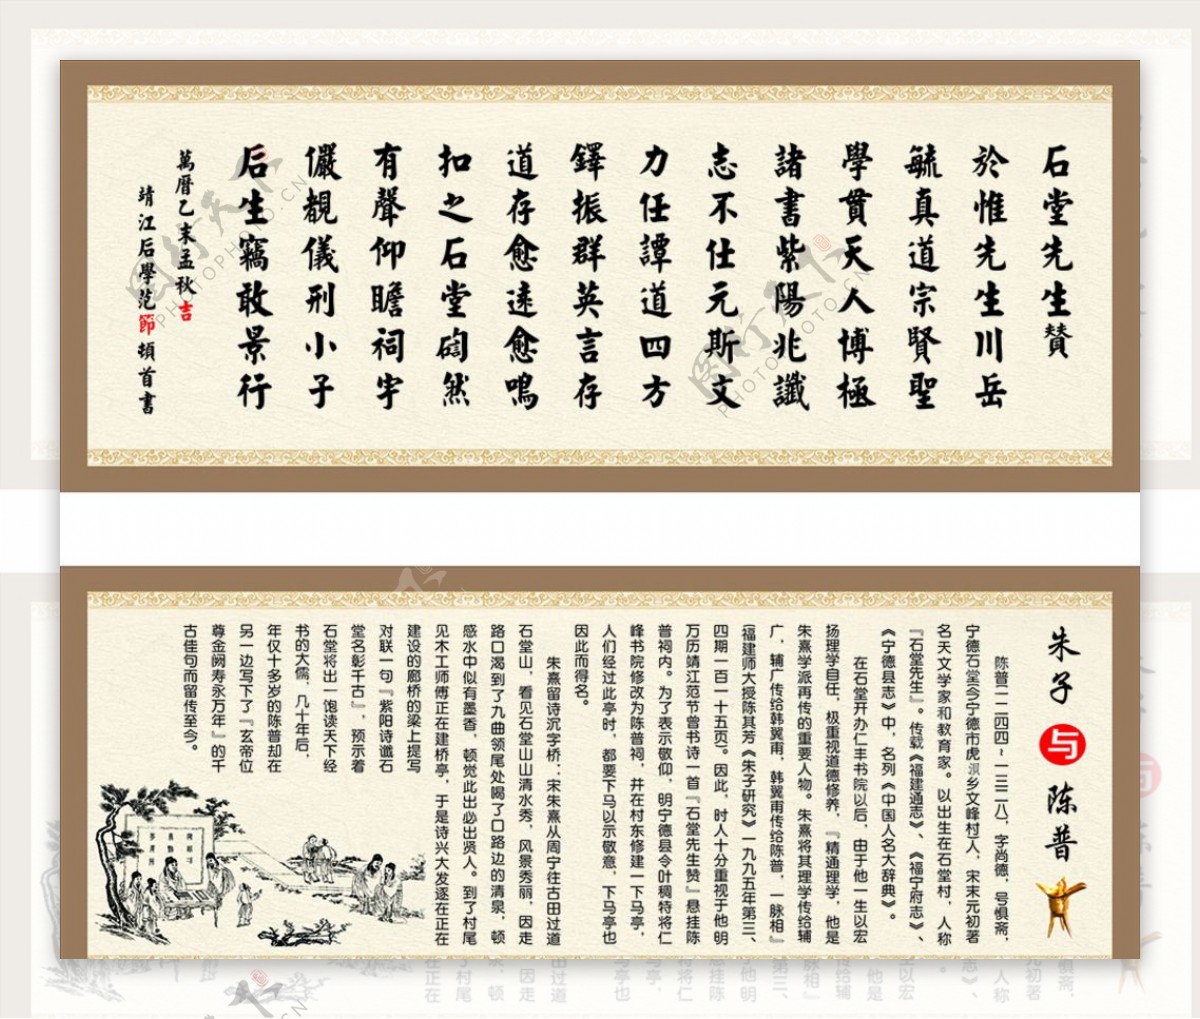 石堂先生贊
於惟先生川岳
毓真道宗賢聖
學貫天人博極
諸書紫陽兆讖
志不仕元斯文
力任譚道四方
鐸振群英言存
道存愈遠愈鳴
扣之石堂訇然
有聲仰瞻祠宇
儼覩儀刑小子
后生竊敢景行
萬曆乙未孟秋吉
靖江后學范節頓首書
朱子与陈普
陈普(一二四四~一三二八)，字尚德，号惧斋，
宁德石堂(今宁德市虎浿乡文峰村)人，宋末元初著
名天文学家和教育家。以出生在石堂村，人称
『石堂先生』。传载《福建通志》、《福宁府志》、
《宁德县志》中，名列《中国人名大辞典》。
在石堂开办仁丰书院以后，由于他一生以宏
扬理学自任，极重视道德修养，『精通理学，他是
朱熹学派再传的重要人物。朱熹将其理学传给辅
广，辅广传给韩翼甫，韩翼甫传给陈普，一脉相』
(福建师大授陈其芳《朱子研究》一九九五年第三、
四期一百一十五页)。因此，时人十分重视于他明
万历靖江范节曾书诗一首『石堂先生赞』悬挂陈
普祠内。为了表示敬仰，明宁德县令叶稠特将仁
峰书院修改为陈普祠，并在村东修建一下马亭，
人们经过此亭时，都要下马以示敬意，下马亭也
因此而得名。
朱熹留诗沉字桥：宋朱熹从周宁往古田过道
石堂山，看见石堂山山清水秀，风景秀丽，因走
路口渴到了九曲领尾处喝了口路边的清泉，顿
感水中似有墨香，顿觉此出必出贤人。到了村尾
见木工师傅正在建桥亭，于是诗兴大发逐在正在
建设的廊桥的梁上提写
对联一句『紫阳诗谶石
堂名彰千古』，预示着
石堂将出一饱读天下经
书的大儒，几十年后，
年仅十多岁的陈普却在
另一边写下了『玄帝位
尊金阙寿永万年』的千
古佳句而留传至今。